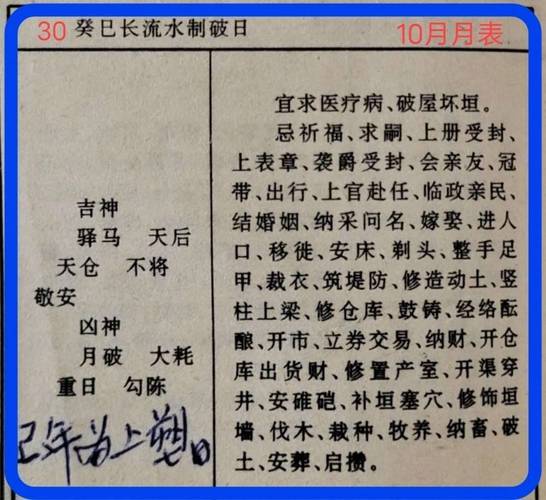 30 癸巳长流水制破日
10月月表
吉神
驿马 天后
天仓 不将
敬安
凶神
月破 大耗
重日 勾陈
宜求医疗病、破屋坏垣。
忌祈福、求嗣、上册受封、
上表章、袭爵受封、会亲友、冠
带、出行、上官赴任、临政亲民、
结婚姻、纳采问名、嫁娶、进人
口、移徙、安床、剃头、整手足
甲、裁衣、筑堤防、修造动土、竖
柱上梁、修仓库、鼓铸、经络酝
酿、开市、立券交易、纳财、开仓
库出货财、修置产室、开渠穿
井、安碓硙、补垣塞穴、修饰垣
墙、伐木、栽种、牧养、纳畜、破
土、安葬、启攒。
年为上塑日